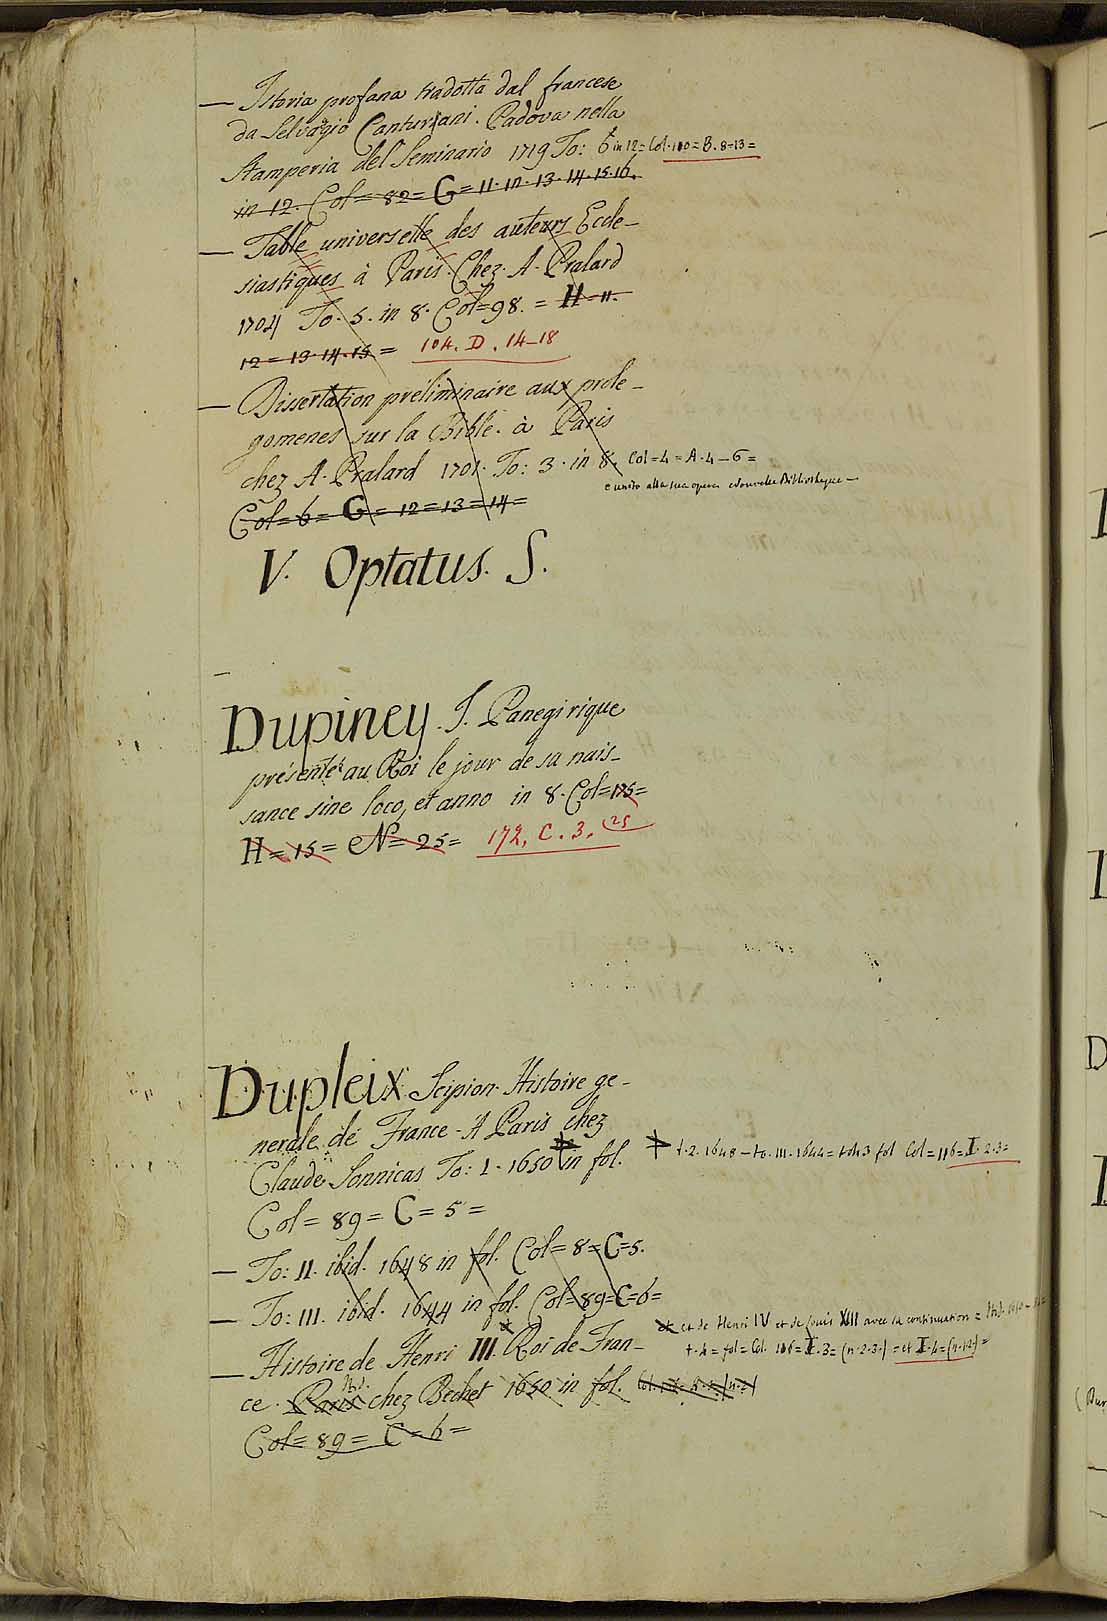 — Istoria profana tradotta dal francese
da Selvagio Canturani. Padova nella
Stamperia del Seminario 1719 To: 6 in 12 = Col. 100 = B. 8=13 =
in 12. Col = 82 = G = 11. 12. 13. 14. 15. 16.
— Table universelle des auteurs Eccle-
siastiques à Paris. Chez A. Pralard
1704 To. 5. in 8. Col=98. = H = 11.
12 = 13. 14. 15 = 104. D. 14-18
— Dissertation préliminaire aux prole-
gomenes sur la Bible. à Paris
chez A. Pralard 1701. To: 3. in 8. Col=4 = A. 4 — 6 =
e unito alla sua opera Nouvelle Bibliotheque —
Col= 6 = G = 12 = 13 = 14 =
V. Optatus. S.
Dupiney. J. Panegirique
présenté au Roi le jour de sa nais-
sance sine loco, et anno in 8. Col=175=
H = 15 = N = 25 = 172, C. 3. (25
Dupleix Scipion. Histoire ge-
nerale de France. A Paris chez
Claude Sonnicas To: 1. 1650 in fol. t. 2. 1648 — to. III. 1644 = fol Col = 116 = I. 2. 3 =
Col = 89 = C = 5 =
— To: II. ibid. 1648 in fol. Col = 8 = C=5.
— To: III. ibid. 1644 in fol. Col=89=C=6=
et de Henri IV et de Louis XIII avec la continuation =
— Histoire de Henri III. Roi de Fran-
t. 4 = fol = Col. 116 = I. 3 = (n. 2. 3.) = et I. 4 = (n. 1. 2) =
ce. Paris chez Bechet 1650 in fol.
Col= 89 = C = 6 =